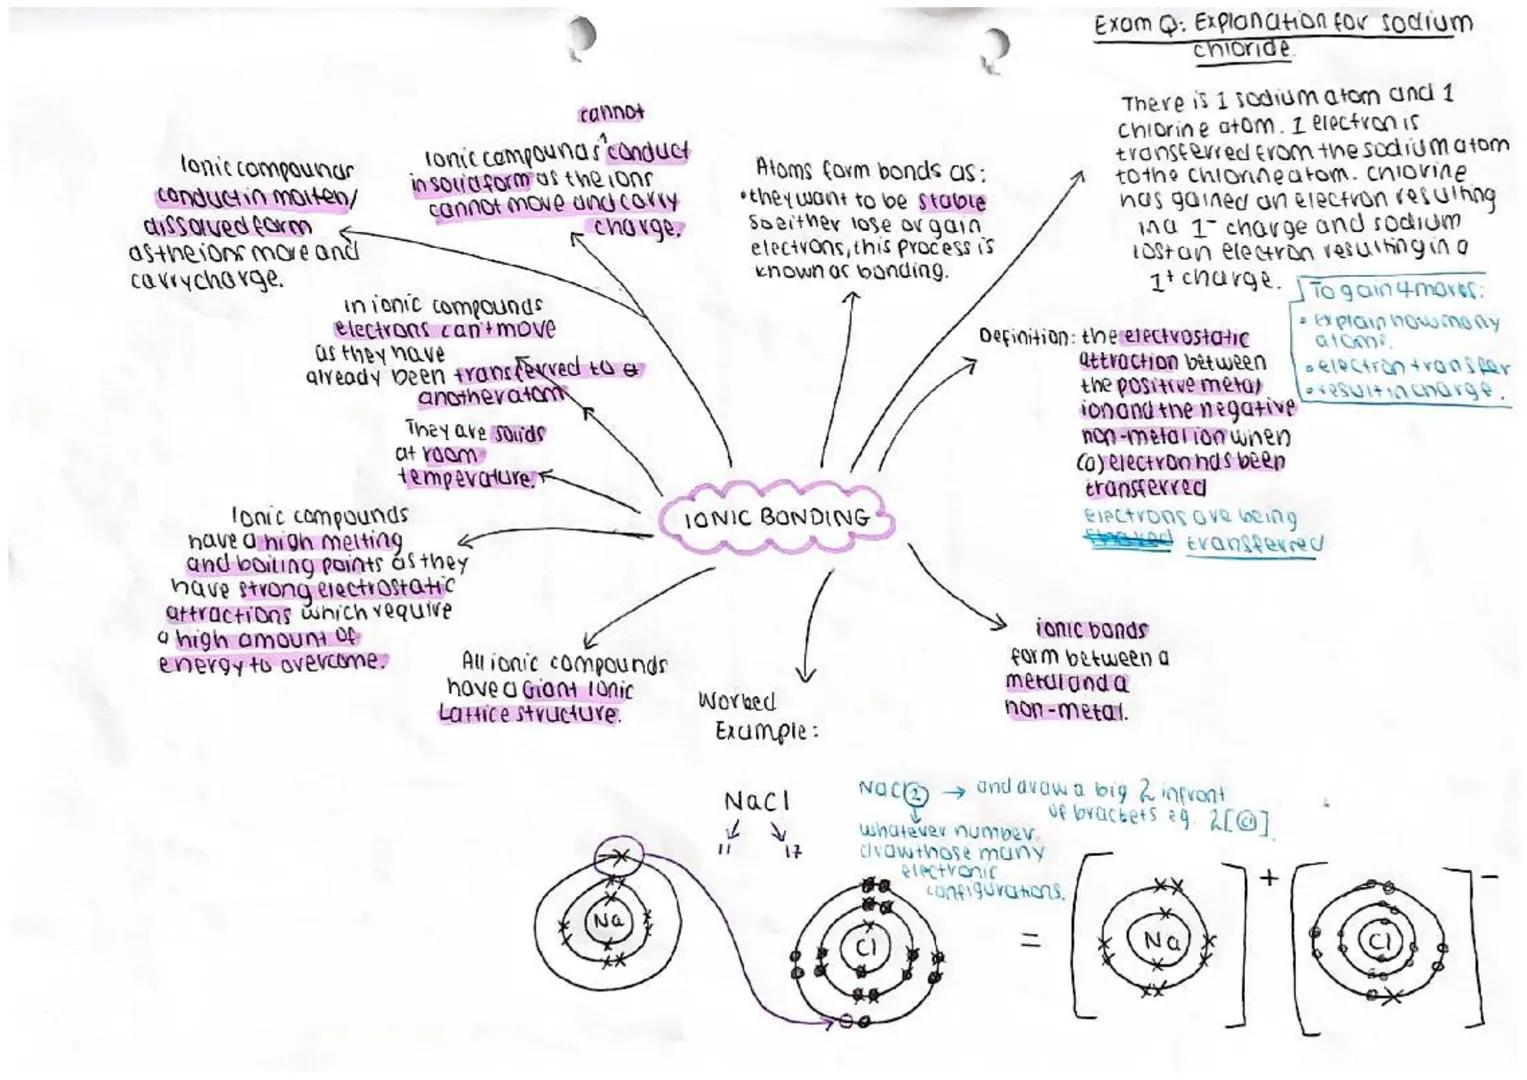 Exam Q: Explanation for sodium
chloride.
There is 1 sodium atom and 1
chlorine atom. 1 electron is
transferred from the sodium atom
to the chlorine atom. Chlorine
has gained an electron resulting
in a 1- charge and sodium
lost an electron resulting in a
1+ charge.
To gain 4 marks:
• explain how many
atoms.
• electron transfer
• result in charge.
cannot
Ionic compounds ^ conduct
in solid form as the ions
cannot move and carry
charge.
Ionic compounds
conduct in molten/
dissolved form
as the ions move and
carry charge.
Atoms form bonds as:
• they want to be stable
so either lose or gain
electrons, this process is
known as bonding.
in ionic compounds
electrons can't move
as they have
already been transferred to a
another atom
Definition: the electrostatic
attraction between
the positive metal
ion and the negative
non-metal ion when
(a) electron has been
transferred
electrons are being
shared transferred
They are solids
at room
temperature.
IONIC BONDING
Ionic compounds
have a high melting
and boiling points as they
have strong electrostatic
attractions which require
a high amount of
energy to overcome.
All ionic compounds
have a Giant Ionic
Lattice structure.
Worked
Example:
ionic bonds
form between a
metal and a
non-metal.
NaCl
11 17
NaCl2 → and draw a big 2 infront
of brackets eg. 2[Cl]
whatever number,
draw those many
electronic
configurations.
Na
Cl
=
Na
+
Cl
-